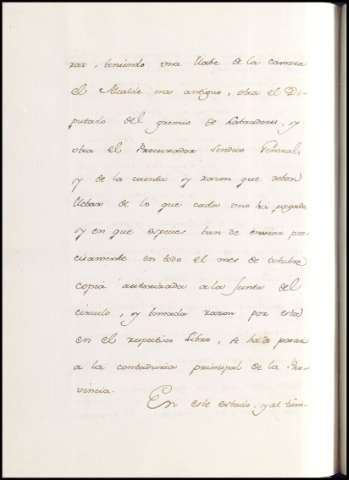 rar, teniendo una llabe de la camara
el Alcalde mas antiguo, otra el Di-
putado del gremio de Labradores, y
otra el Procurador Sindico General,
y de la cuenta y razon que deben
llebar de lo que cada uno ha pagado
y en que especies han de enviar pre-
cisamente en todo el mes de octubre
copia autorizada a la Junta del
circulo, y tomada razon por esta
en el respectivo Libro, se ha de pasar
a la contaduria principal de la Pro-
vincia.
En este estado, y al tiem-